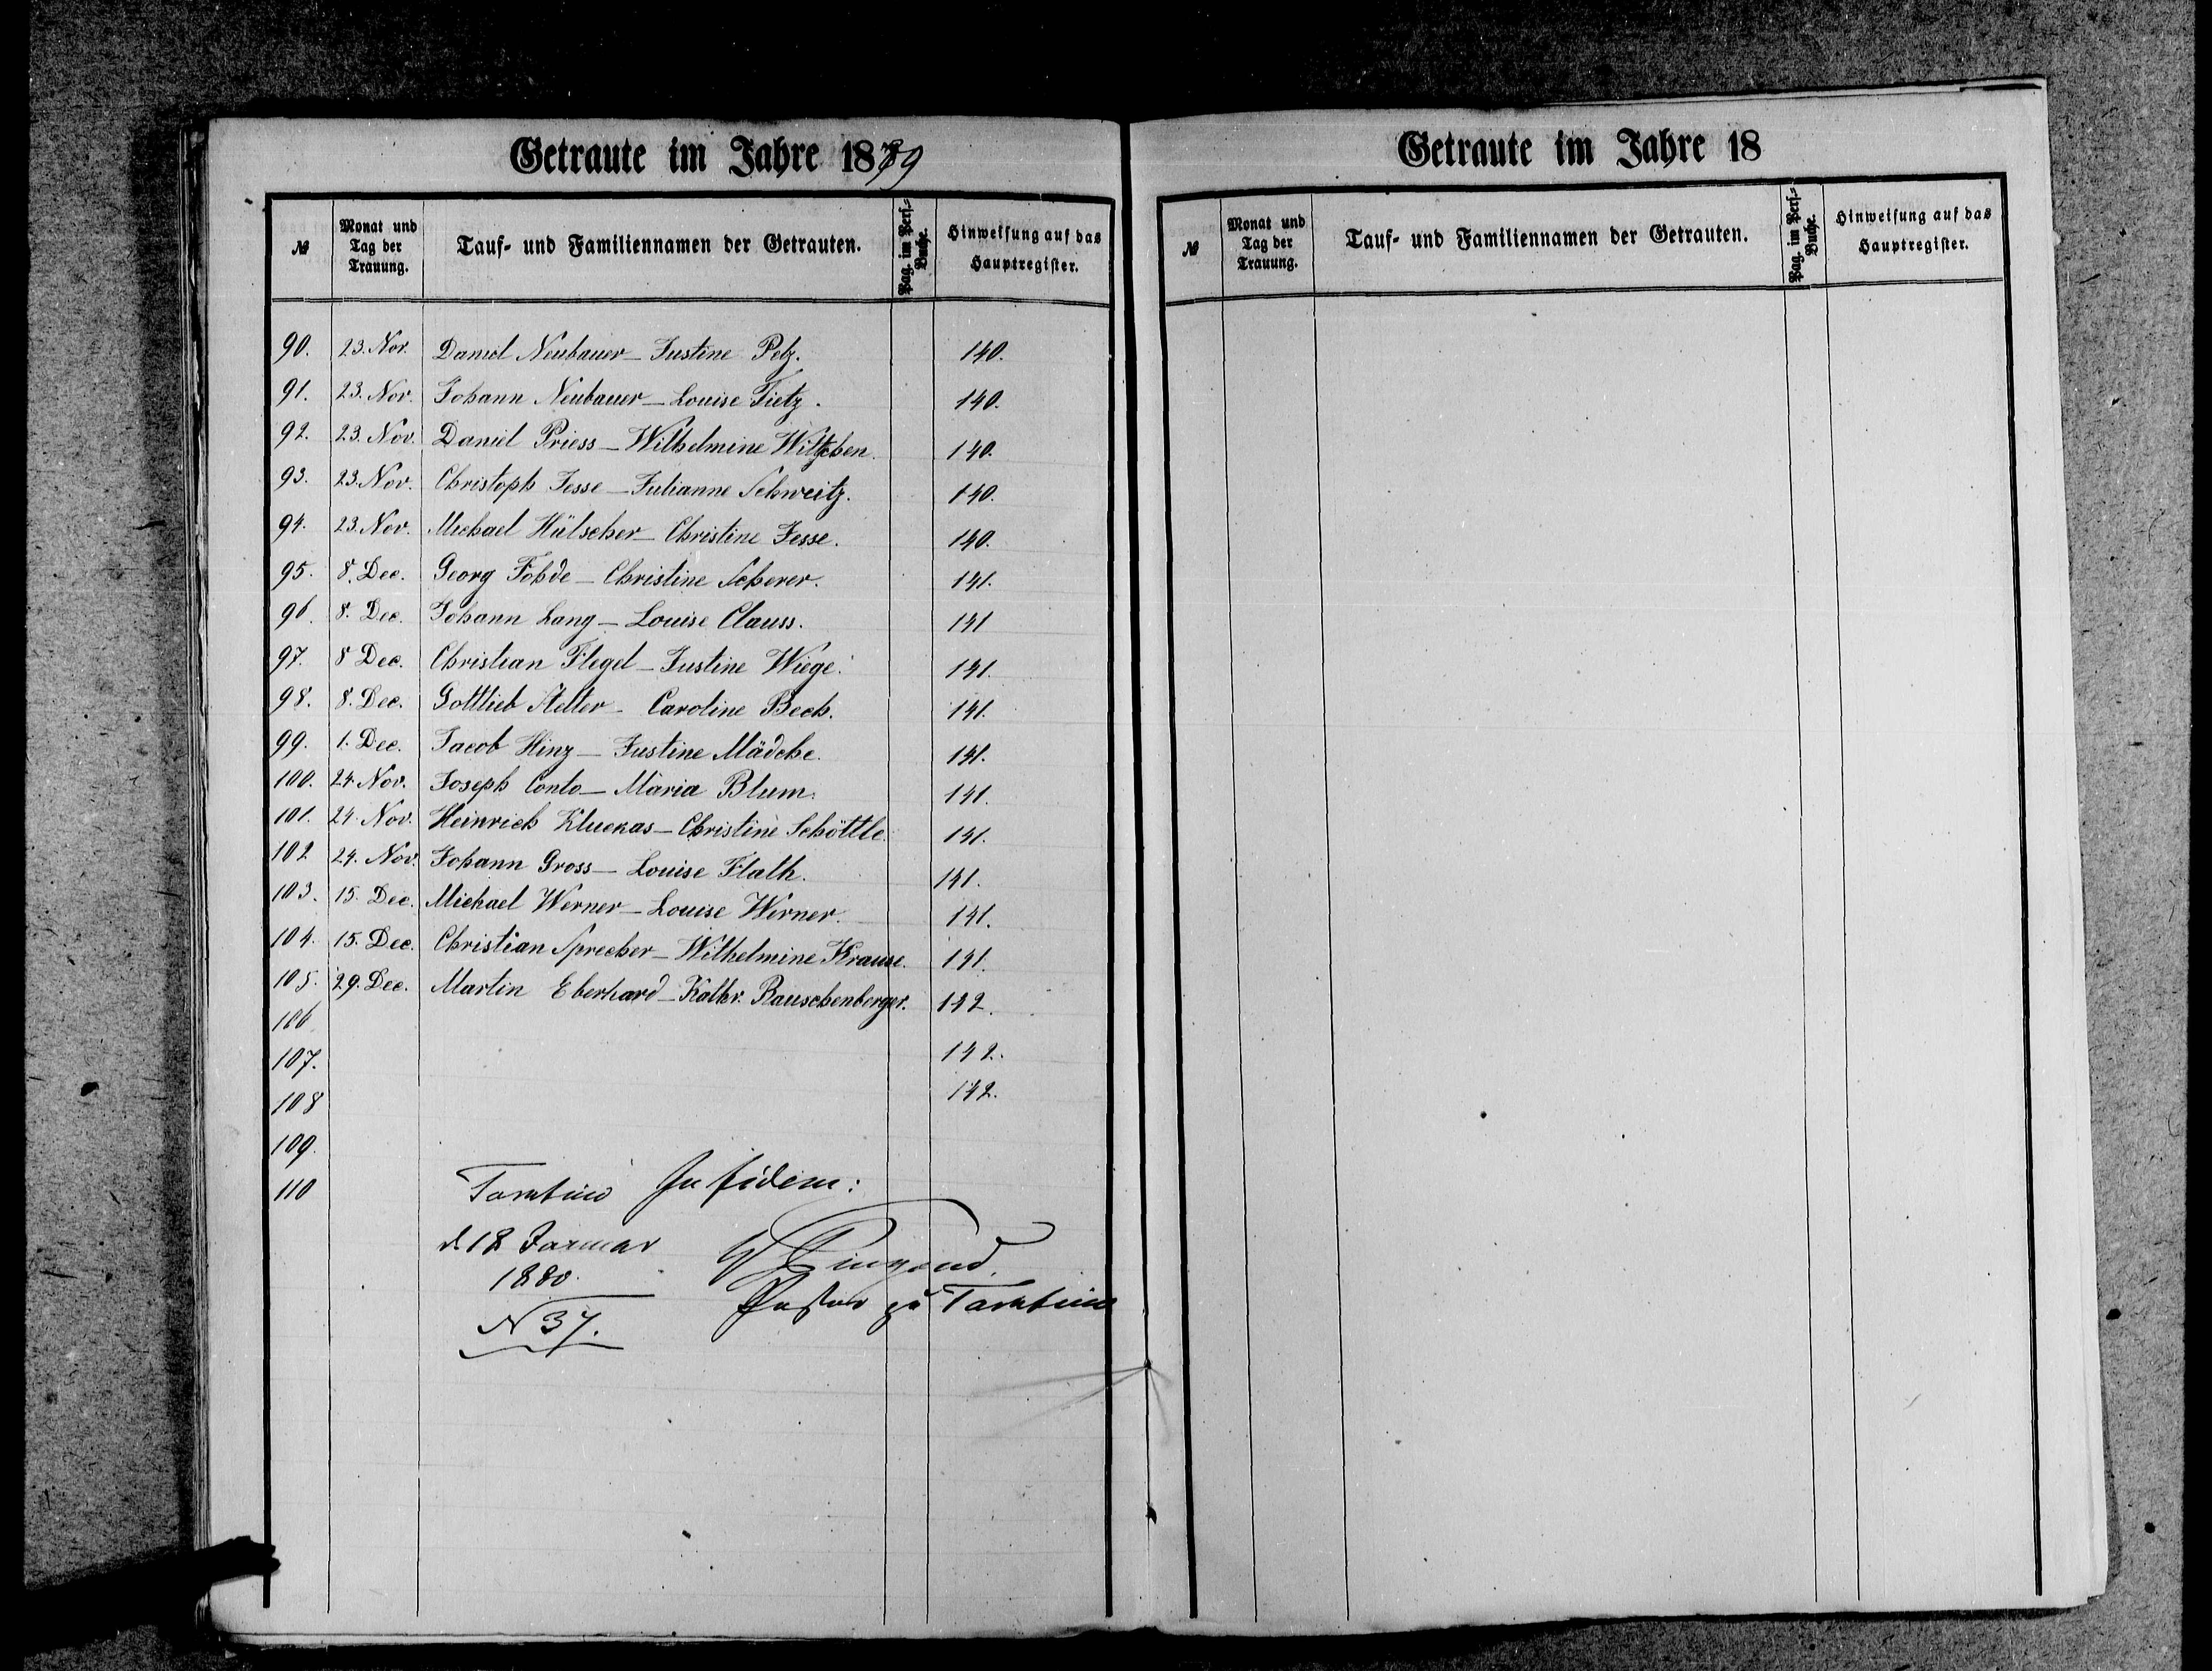 Getraute im Jahre 1879
№ Monat und Tag der Trauung. Tauf- und Familiennamen der Getrauten. Pag. im Pers.-Buche. Hinweisung auf das Hauptregister.
90. 23. Nov. Daniel Neubauer – Justine Pelz. 140.
91. 23. Nov. Johann Neubauer – Louise Tietz. 140.
92. 23. Nov. Daniel Priess – Wilhelmine Witzchen. 140.
93. 23. Nov. Christoph Jesse – Julianne Schweitz. 140.
94. 23. Nov. Michael Hülscher – Christine Jesse. 140.
95. 8. Dec. Georg Fohde – Christine Scherer. 141.
96. 8. Dec. Johann Lang – Louise Clauss. 141
97. 8 Dec. Christian Flegel – Justine Wiege. 141.
98. 8. Dec. Gottlieb Stelter – Caroline Bech. 141.
99. 1. Dec. Jacob Hinz – Justine Mädche. 141.
100. 24. Nov. Joseph Conto – Maria Blum. 141.
101. 24. Nov. Heinrich Kluckas – Christine Schöttle. 141.
102 24. Nov. Johann Gross – Louise Flath. 141.
103. 15. Dec. Michael Werner – Louise Werner. 141.
104. 15. Dec. Christian Sprecher – Wilhelmine Krause. 141.
105. 29. Dec. Martin Eberhard – Kathr. Rauschenberger. 142.
106
107. 142.
108 142.
109.
110
Tarutino In fidem:
d. 18 Januar
1880.
N 37.
Pastor zu Tarutino
Getraute im Jahre 18
№ Monat und Tag der Trauung. Tauf- und Familiennamen der Getrauten. Pag. im Pers.-Buche. Hinweisung auf das Hauptregister.